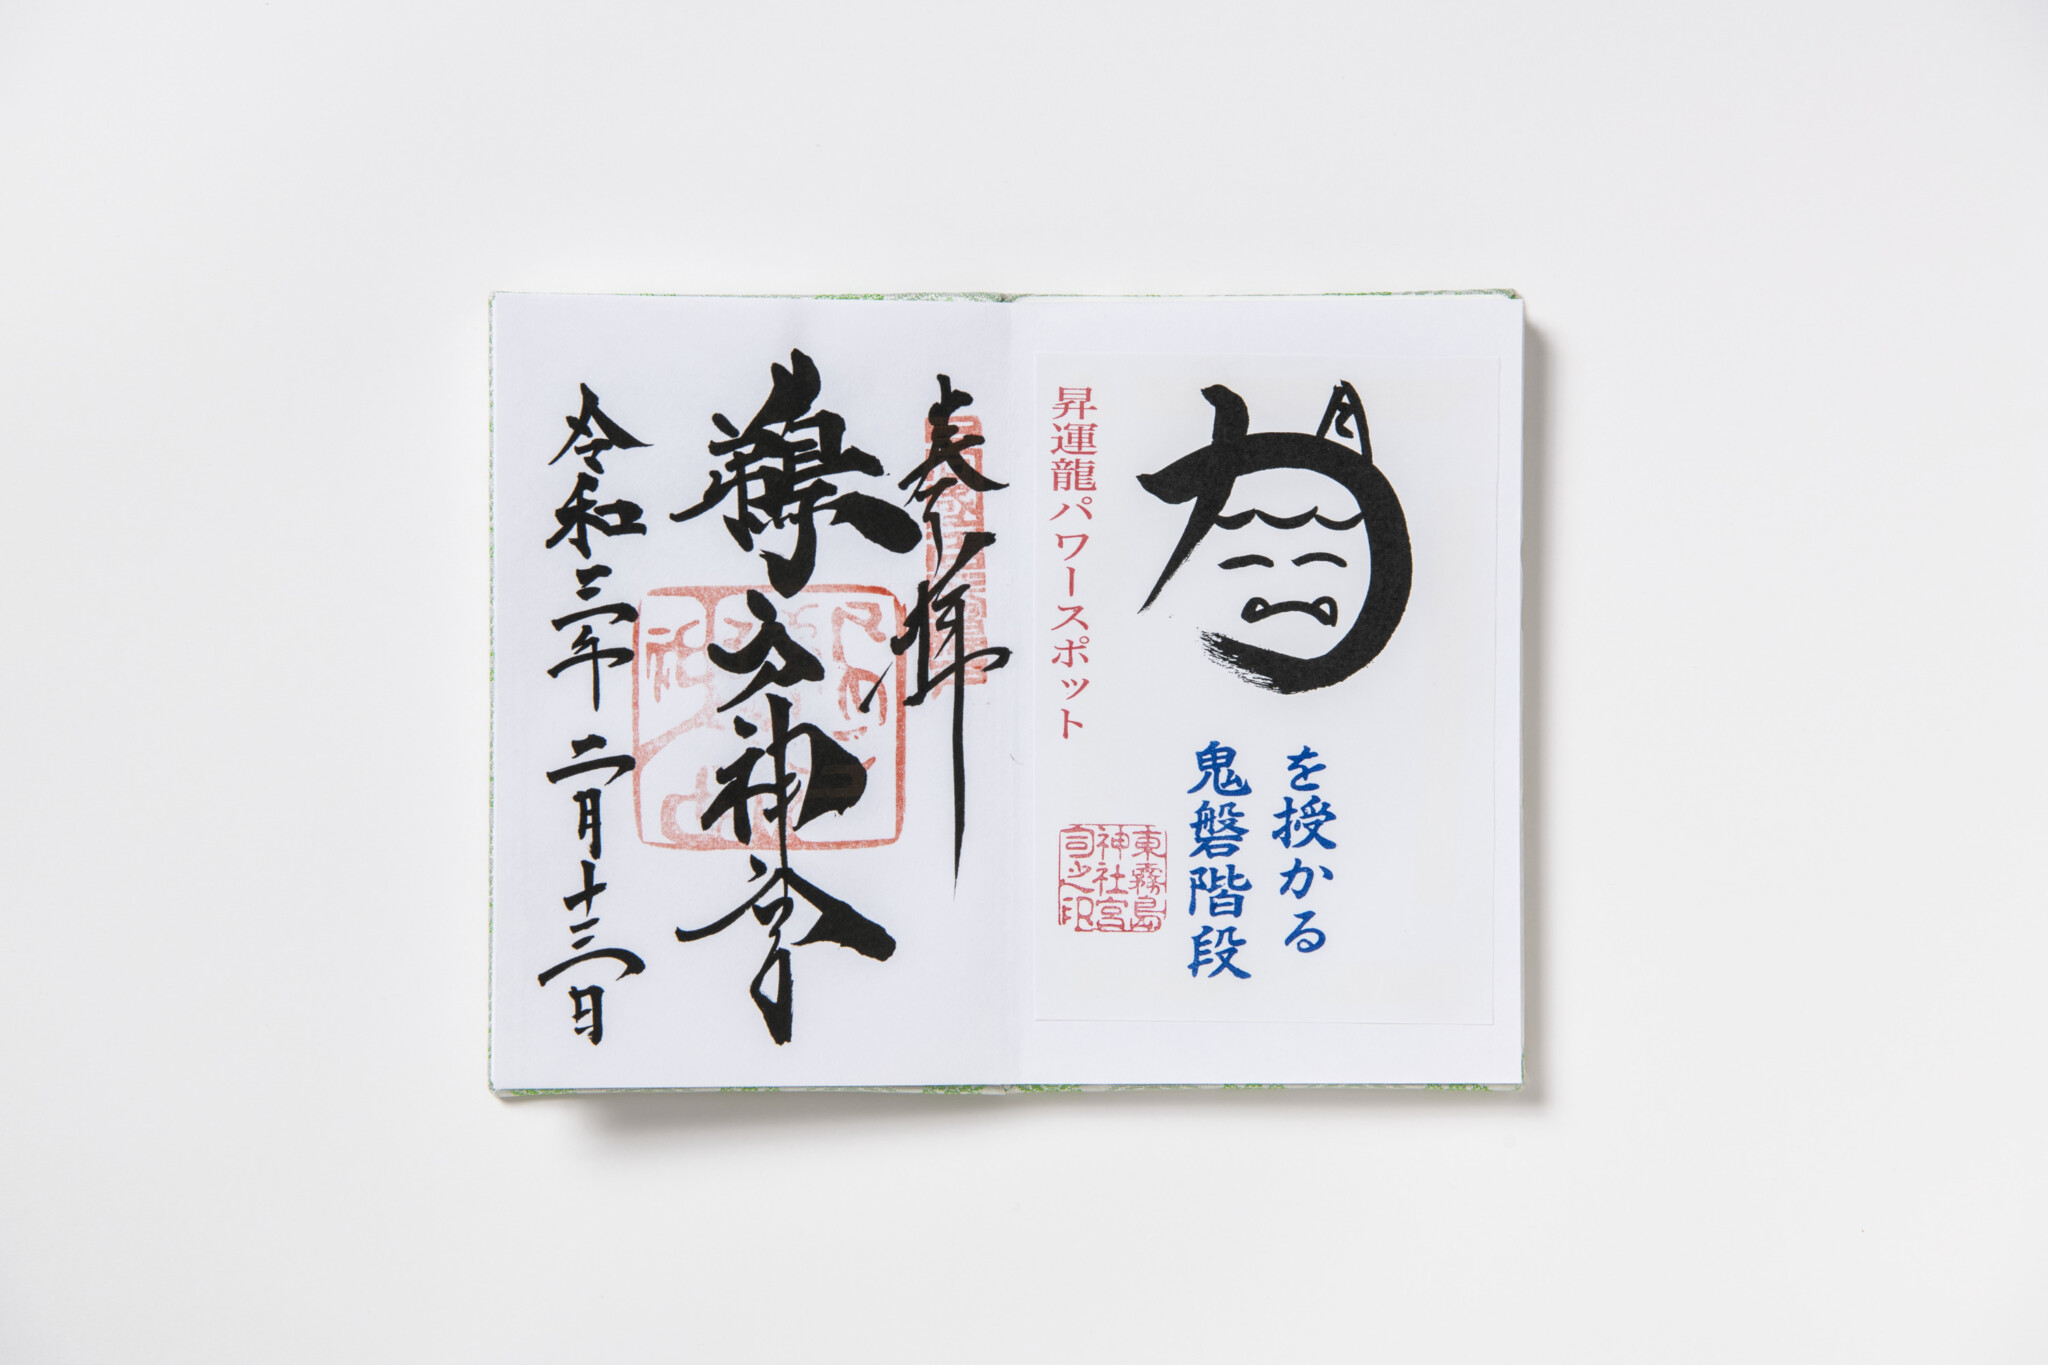 を授かる
鬼磐階段
昇運龍パワースポット
東霧島
神社宮
司之印
奉拝
鵜戸神宮
令和三年二月十三日